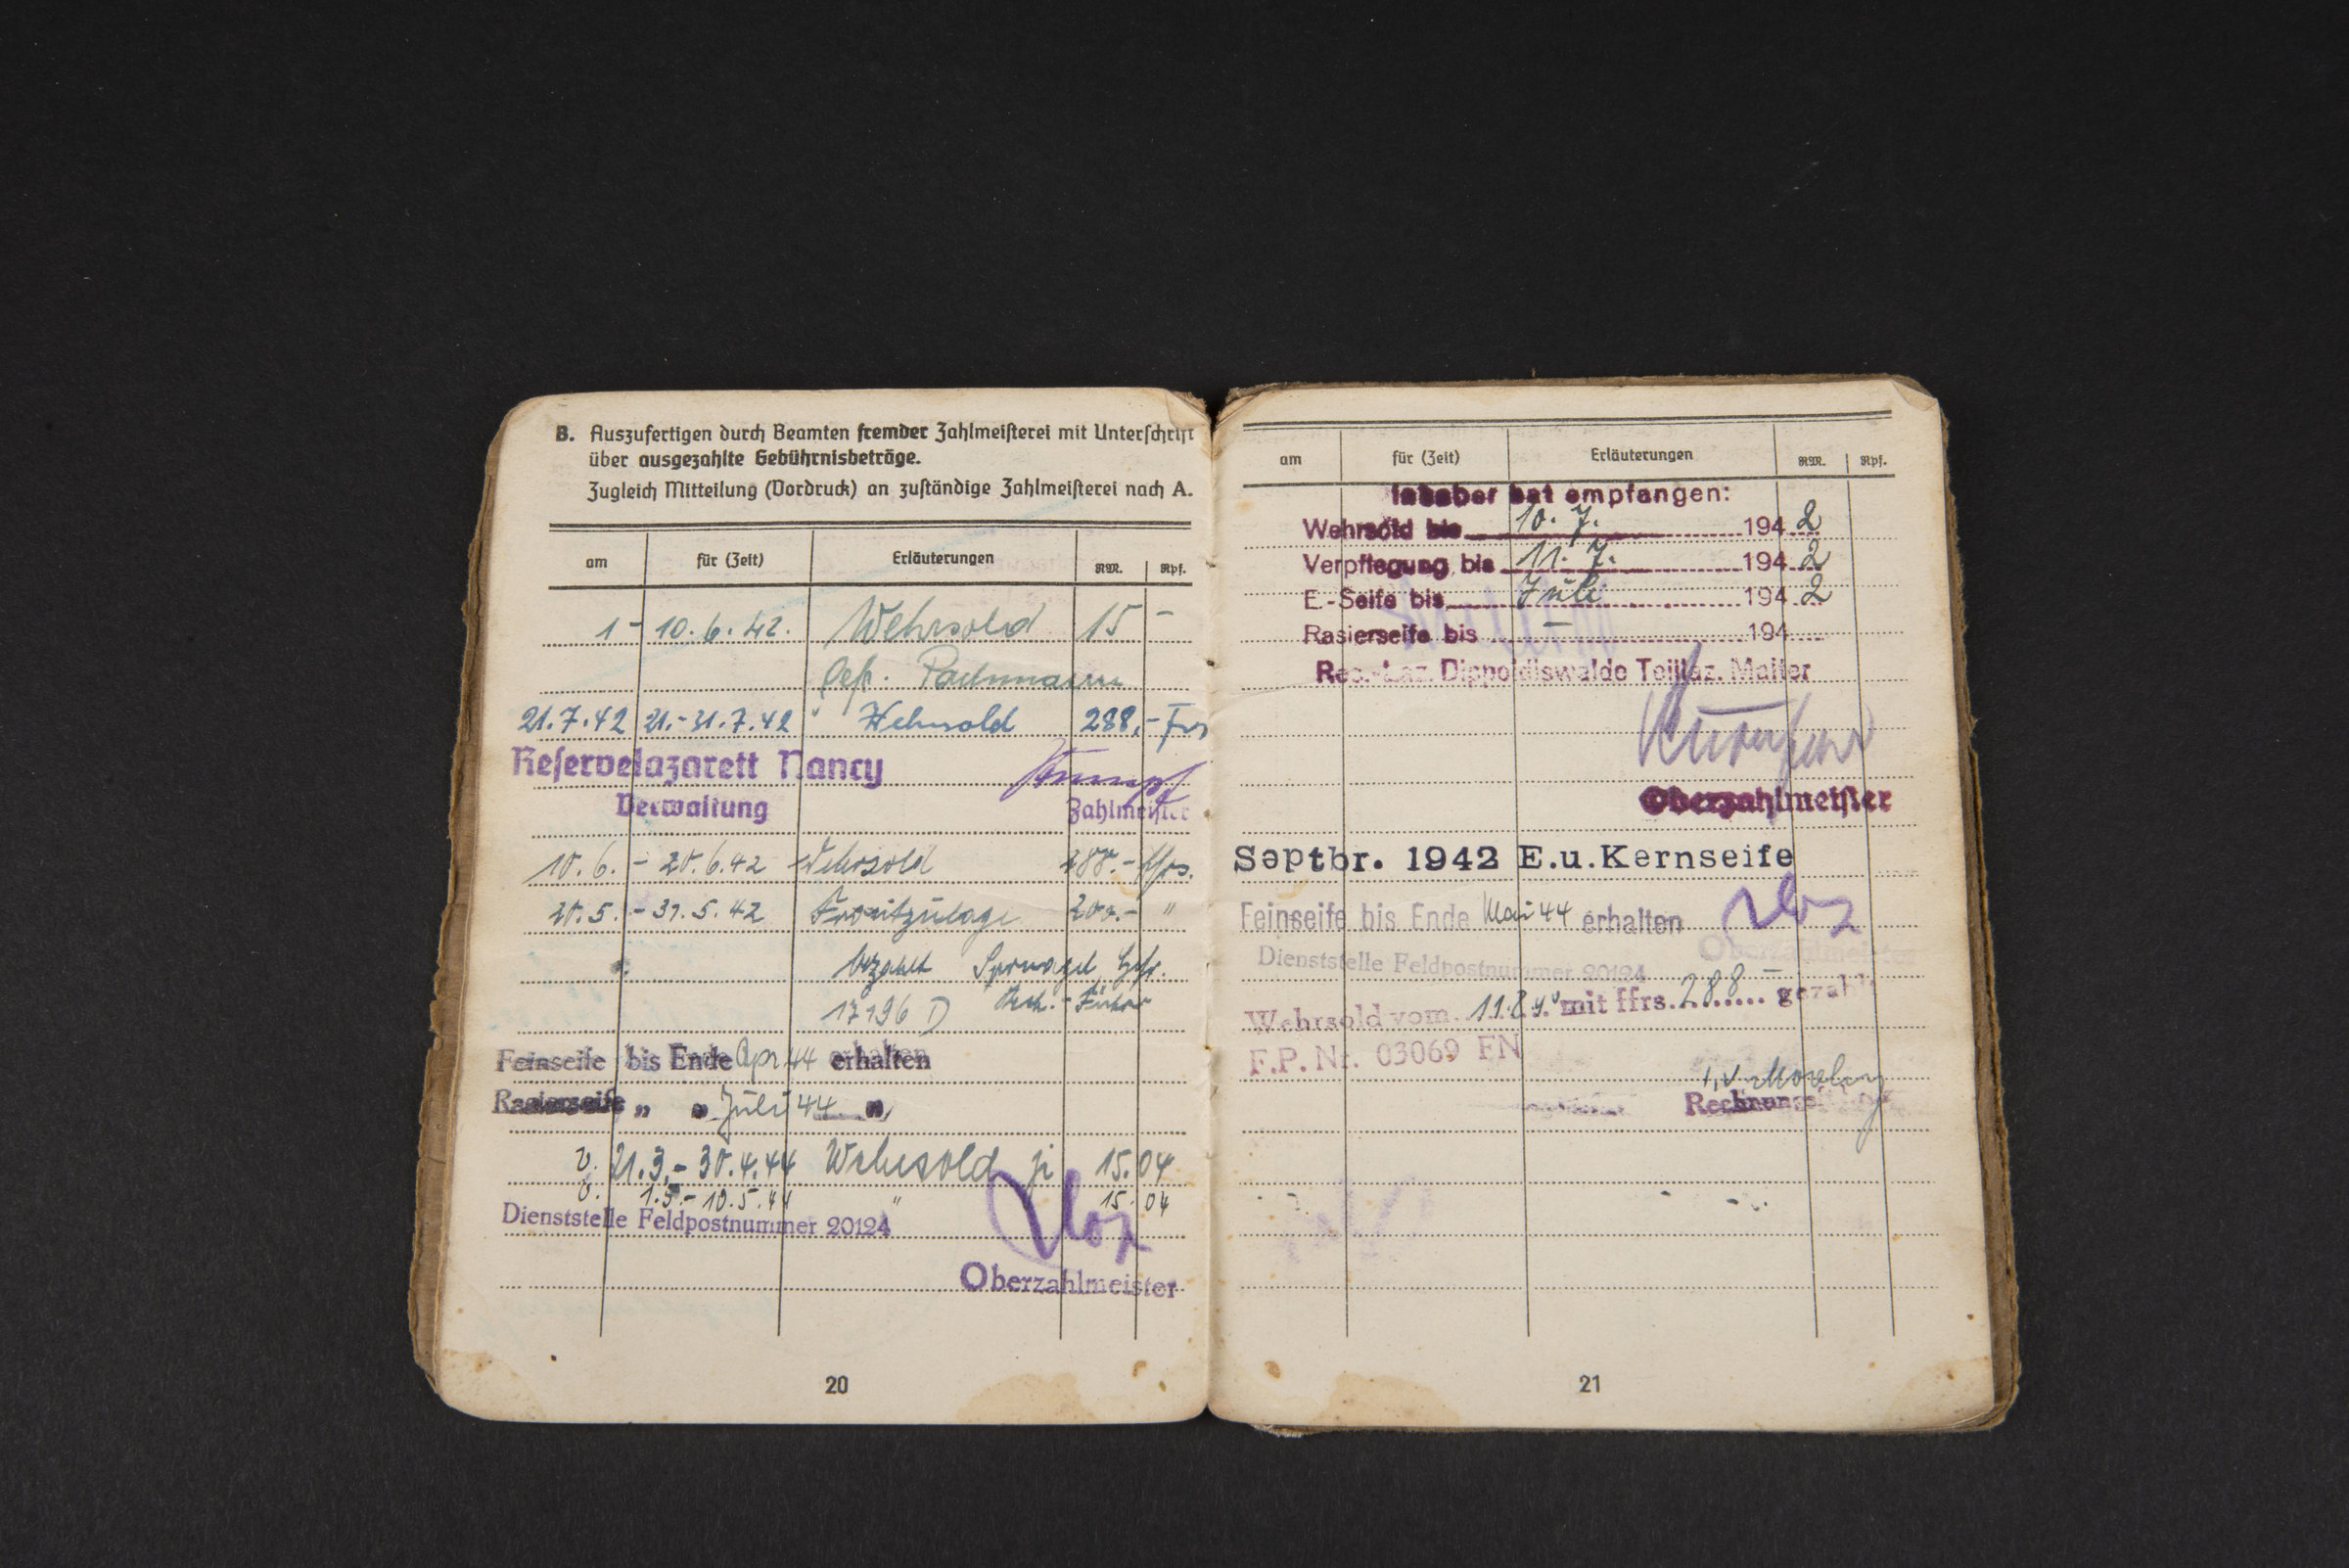 B. Auszufertigen durch Beamten fremder Zahlmeisterei mit Unterschrift
über ausgezahlte Gebührnisbeträge.
Zugleich Mitteilung (Vordruck) an zuständige Zahlmeisterei nach A.
am für (Zeit) Erläuterungen RM. Rpf.
1 - 10.6.42. Wehrsold 15 -
21.7.42 21.-31.7.42 Wehrsold 288.- Frs
Reservelazarett Nancy
Verwaltung Zahlmeister
10.6. - 20.6.42 Wehrsold 288.-
20.5. - 31.5.42 Frontzulage 200.- "
bezahlt
17196 D
Feinseife bis Ende Apr 44 erhalten
Rasierseife " " Juli 44 "
v. 21.3.- 30.4.44 Wehrsold je 15.04
v. 1.5.- 10.5.44 " 15.04
Dienststelle Feldpostnummer 20124
Oberzahlmeister
20
am für (Zeit) Erläuterungen RM. Rpf.
Inhaber hat empfangen:
Wehrsold bis 10.7. 1942
Verpflegung bis 11.7. 1942
E.-Seife bis Juli 1942
Rasierseife bis — 194
Res.-Laz. Dippoldiswalde Teillaz. Malter
Oberzahlmeister
Septbr. 1942 E.u.Kernseife
Feinseife bis Ende Mai 44 erhalten
Dienststelle Feldpostnummer 20124 Oberzahlmeister
Wehrsold vom mit ffrs. 288 — gezahlt
F.P.Nr. 03069 FN
21